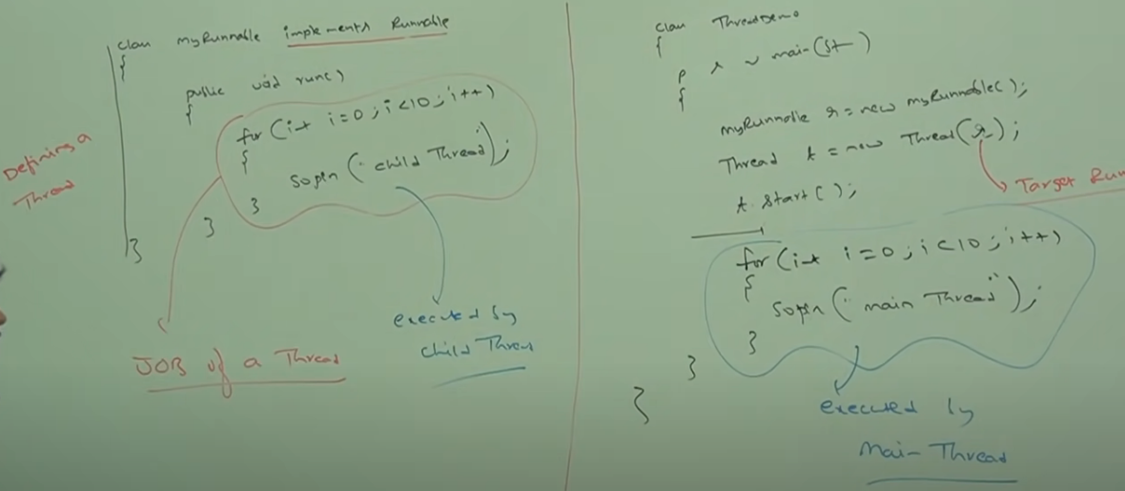 class myRunnable implements Runnable
{
public void run()
{
for (int i=0; i<10; i++)
{
sopln("child Thread");
}
}
}
Defining a
Thread
JOB of a Thread
executed by
child Thread
class ThreadDemo
{
p s v main(St—)
{
myRunnable r = new myRunnable();
Thread t = new Thread(r);
t.start();
Target Run
for (int i=0; i<10; i++)
{
sopln("main Thread");
}
}
}
executed by
Main Thread